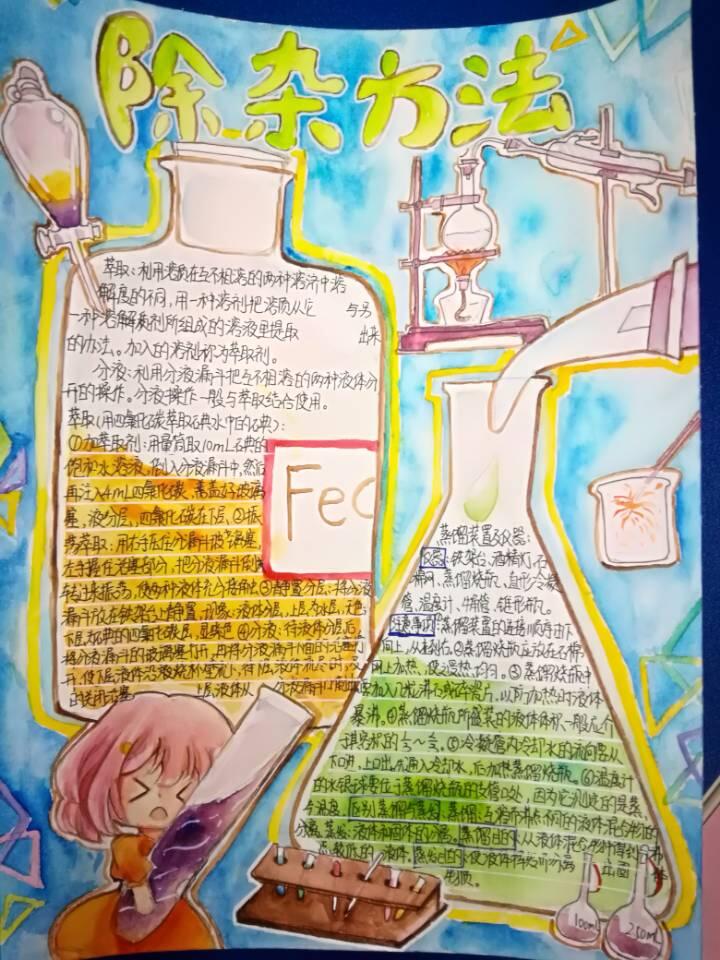 除杂方法
萃取：利用溶质在互不相溶的两种溶济中溶
解度的不同，用一种溶剂把溶质从它 与另
一种溶解度剂所组成的溶液里提取 出来
的办法。加入的溶剂称为萃取剂。
分液：利用分液漏斗把互不相溶的两种液体分
开的操作。分液操作一般与萃取结合使用。
萃取（用四氯化碳萃取碘水中的碘）：
①加萃取剂：用量筒取10mL碘的
饱和水溶液，倒入分液漏斗中，然后
再注入4mL四氯化碳，盖盖好玻璃
塞，液分层，四氯化碳在下层，②振
荡萃取：用右手压住分漏斗玻璃塞
左手握在活塞部分，把分液漏斗倒
转过来振荡，使两种液体充分接触；③静置分层：将分液
漏斗放在铁架台上静置，现象：液体分层，上层为水层，无色；
下层为碘的四氯化碳层，显紫色 ④分液：待液体分层后，
将分液漏斗的玻璃塞打开，再将分液漏斗下面的活塞打
开，使下层液体
的关闭活塞 上层液体从 分液漏斗
FeC
蒸馏装置及仪器：
仪器：铁架台、酒精灯、石
棉网、蒸馏烧瓶、直形冷凝
管、温度计、牛角管、锥形瓶。
注意事项：蒸馏装置的连接顺序由下
向上，从左到右。②蒸馏烧瓶应放在石棉
网上加热，使之受热均匀。③蒸馏烧瓶中
加入几粒沸石或碎瓷片，以防加热时液体
暴沸。④蒸馏烧瓶所盛装的液体体积一般为个
⑤冷凝管内冷却水的流向需从
下口进，上口出，先通入冷却水，后加热蒸馏烧瓶。⑥温度计
的水银球要位于蒸馏烧瓶的支管口处，因为它测定的是蒸
今温度 区别蒸馏与蒸发 蒸馏：互溶而沸点不同的液体混合物的
分离，蒸发：液体和固体的分离。蒸馏目的：从液体混合物中得到
点较低的液体。蒸发目的：
物质。
100mL
250mL